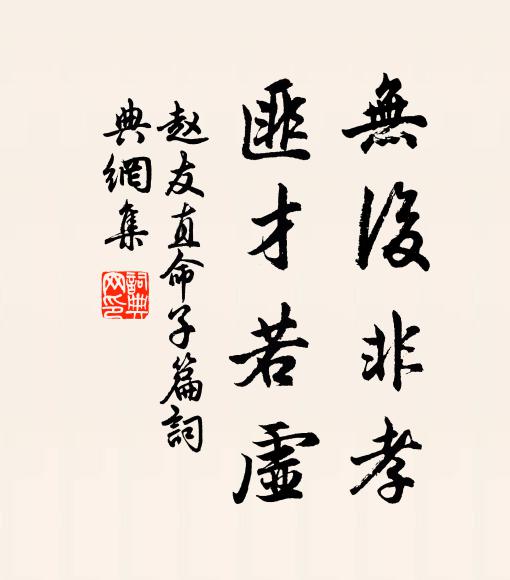 無後非孝
匪才若虛
赵友直命子篇詞
典網集
詞典
网印